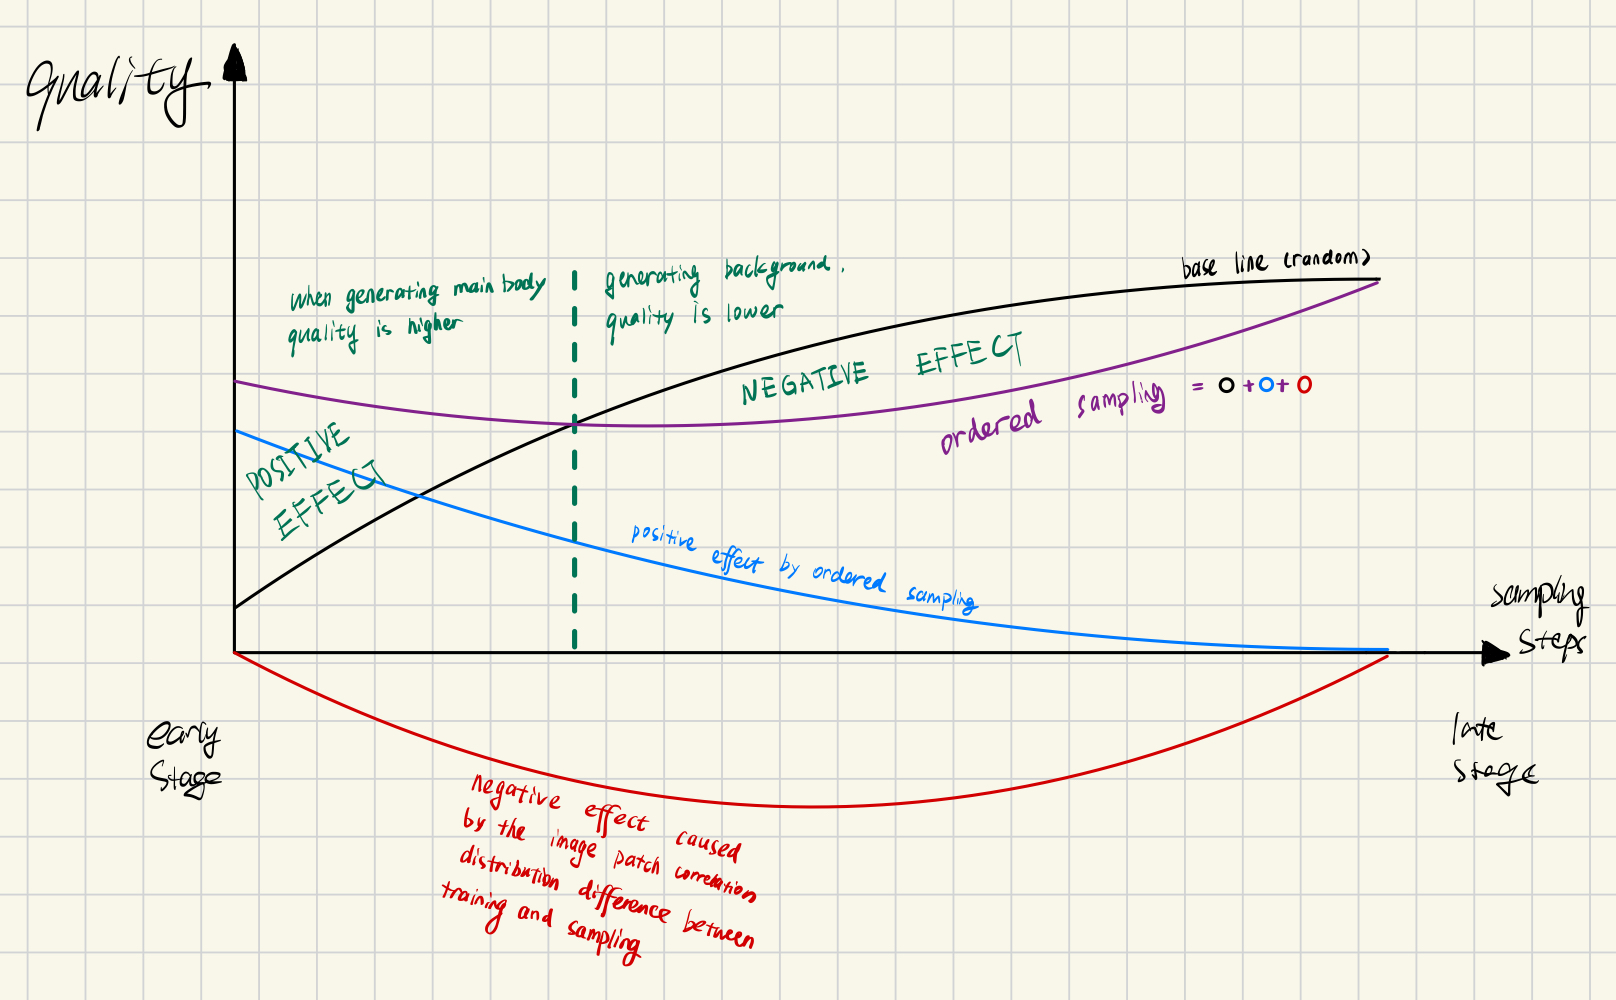 quality
base line (random)
when generating main body
quality is higher
generating background.
quality is lower
NEGATIVE EFFECT
ordered sampling = O + O + O
POSITIVE
EFFECT
positive effect by ordered sampling
sampling
steps
early
stage
late
stage
negative effect caused
by the image patch correlation
distribution difference between
training and sampling